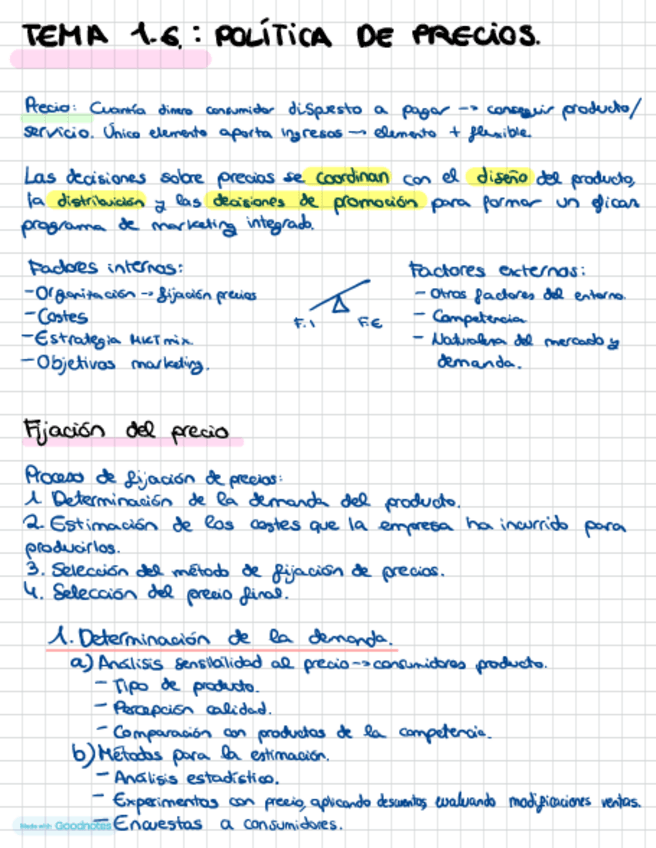 TEMA 1.6.: POLÍTICA DE PRECIOS.
Precio: Cuantía dinero consumidor dispuesto a pagar -> conseguir producto/
servicio. Único elemento aporta ingresos -> elemento + flexible.
Las decisiones sobre precios se coordinan con el diseño del producto,
la distribuición y las decisiones de promoción para formar un eficaz
programa de marketing integrado.
Factores internos:
- Organización -> fijación precios
- Costes
- Estrategia MKT mix.
- Objetivos marketing.
F.I F.E
Factores externos:
- Otros factores del entorno.
- Competencia
- Naturaleza del mercado y
demanda.
Fijación del precio
Proceso de fijación de precios:
1. Determinación de la demanda del producto.
2. Estimación de los costes que la empresa ha incurrido para
producirlos.
3. Selección del método de fijación de precios.
4. Selección del precio final.
1. Determinación de la demanda.
a) Análisis sensibilidad al precio -> consumidores producto.
- Tipo de producto.
- Percepción calidad.
- Comparación con productos de la competencia.
b) Métodos para la estimación.
- Análisis estadístico.
- Experimentos con precio, aplicando descuentos, evaluando modificaciones ventas.
- Encuestas a consumidores.
Made with Goodnotes